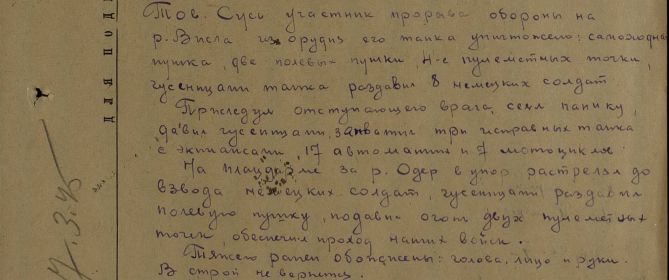 Тов. Сусь участник прорыва обороны на
р. Висла из орудия его танка уничтожено: самоходная
пушка, две полевых пушки, 4-е пулеметных точки,
гусеницами танка раздавил 8 немецких солдат.
Преследуя отступающего врага, сеял панику,
давил гусеницами, захватил три исправных танка
с экипажами, 17 автомашин и 7 мотоцикл.
На плацдарме за р. Одер в упор растрелял до
взвода немецких солдат, гусеницами раздавил
полевую пушку, подавил огонь двух пулеметных
точек, обеспечил проход наших войск.
Тяжело ранен обожжены: голова, лицо и руки.
В строй не вернется.
ДЛЯ ПОД
7.3.45